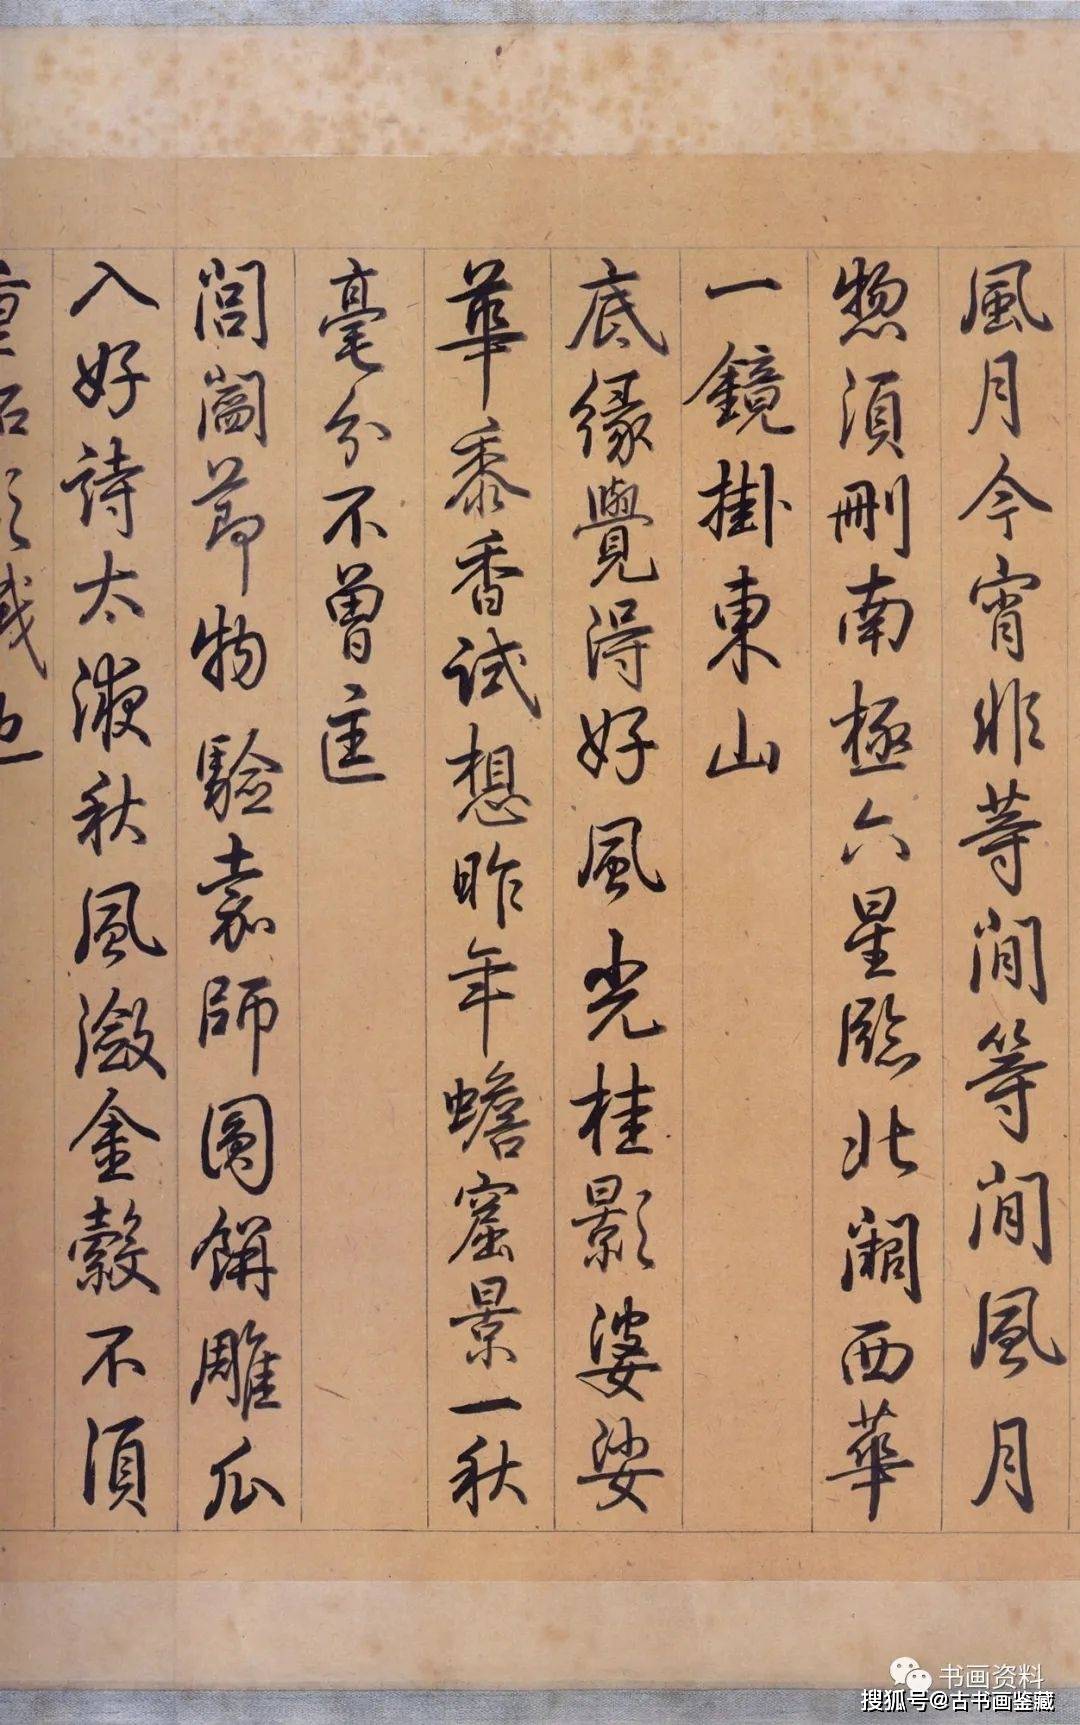 風月今宵非等閒等閒風月
惣須刪南極六星臨北闕西華
一鏡掛東山
底緣覺得好風光桂影婆娑
華黍香試想昨年蟾窟景一秋
毫分不曾𨒪
閶闔節物驗嘉師圓餅雕瓜
入好詩太液秋風瀲金縠不須
重
书画资料
搜狐号@古书画鉴藏